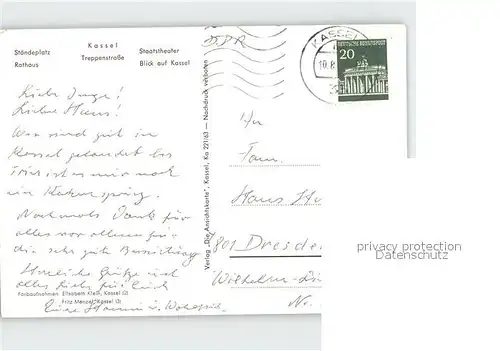 Kassel
Ständeplatz Treppenstraße Staatstheater
Rathaus Blick auf Kassel
DBR
KASSEL
10.8.
DEUTSCHE BUNDESPOST
20
Liebe Inge!
Lieber Hans!
Wir sind gut in
Kassel gelandet bis
Trier ist es nur noch
ein Katzensprung.
Nochmals Dank für
alles vor allem für
die sehr gute Bewirtung
Herzliche Grüße und
alles Liebe für Euch
Eure Hanni u.
Farbaufnahmen Elisabeth Kleih, Kassel (2)
Fritz Menzel, Kassel (3)
Verlag „Die Ansichtskarte", Kassel, Ka 221/63 — Nachdruck verboten
An
Fam.
Hans
801 Dresden
Wilhelm-
Nr.
privacy protection
Datenschutz